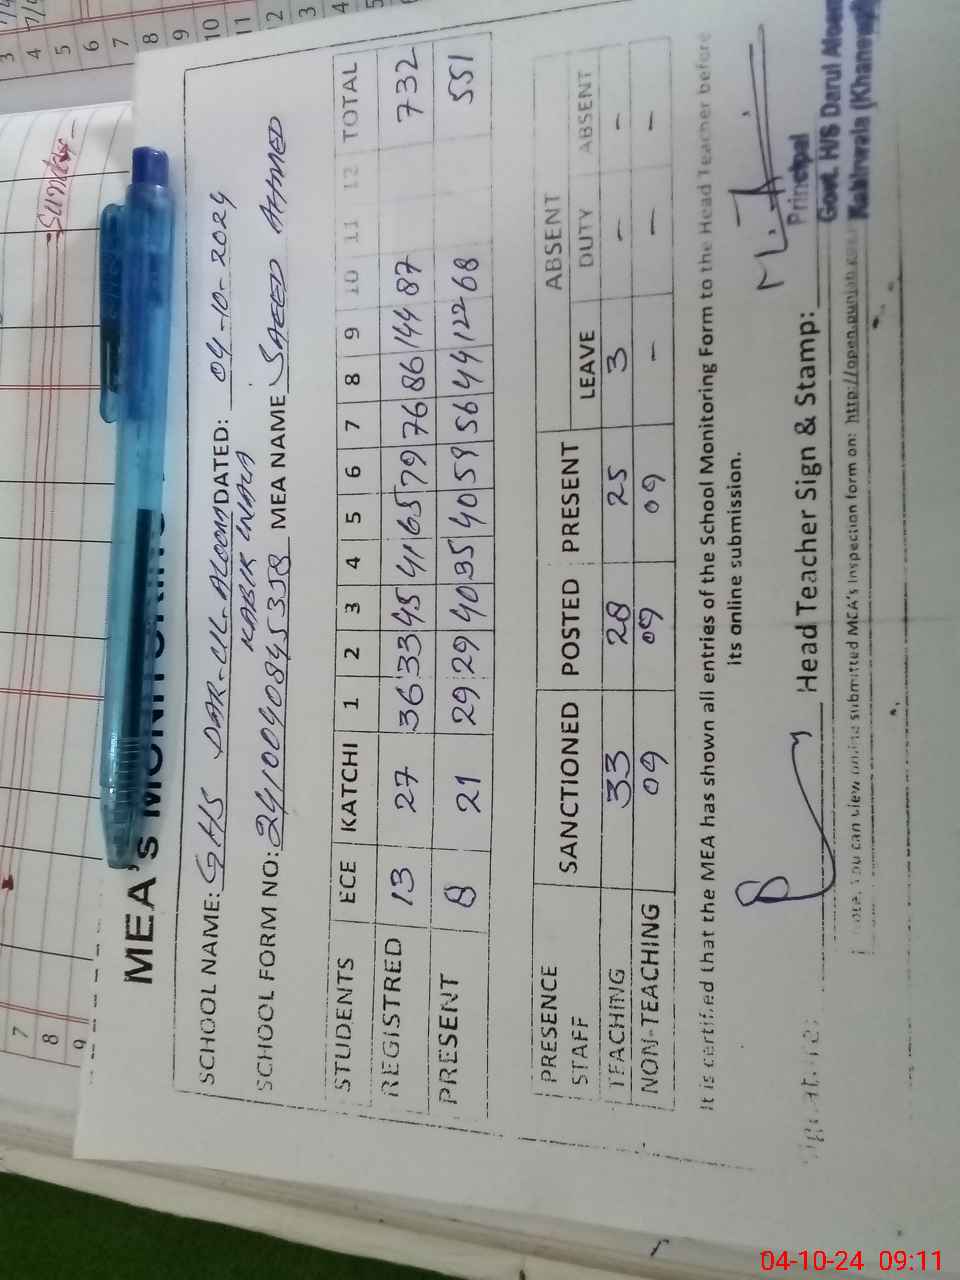 MEA's MONITORING
SCHOOL NAME: GHS DAR-UL-ALOOM DATED: 04-10-2024
KABIR WALA
SCHOOL FORM NO: 24100409084S338 MEA NAME SAEED AHMED
STUDENTS ECE KATCHI 1 2 3 4 5 6 7 8 9 10 11 12 TOTAL
REGISTRED 13 27 36 33 45 41 65 79 76 86 144 87 732
PRESENT 8 21 29 29 40 35 40 59 56 44 122 68 551
PRESENCE SANCTIONED POSTED PRESENT ABSENT
STAFF LEAVE DUTY ABSENT
TEACHING 33 28 25 3 - -
NON-TEACHING 09 09 09 - - -
It is certified that the MEA has shown all entries of the School Monitoring Form to the Head Teacher before
its online submission.
Signature: Head Teacher Sign & Stamp:
Principal
Govt. H/S Darul Aloom
Kabirwala (Khanewal)
Note: You can view online submitted MEA's Inspection form on: http://open.punjab.gov
Sunday
3
4
5
6
7
8
9
10
11
12
3
4
7
8
9
04-10-24 09:11